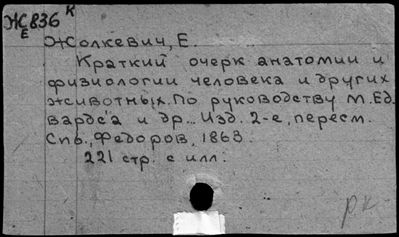 ЖЕ836 К
Жолкевич, Е.
Краткий очерк анатомии и
физиологии человека и других
животных. По руководству М. Ед.
вардс'а и др... Изд. 2-е, пересм.
Спб., Федоров, 1863.
221 стр. с илл.
рк